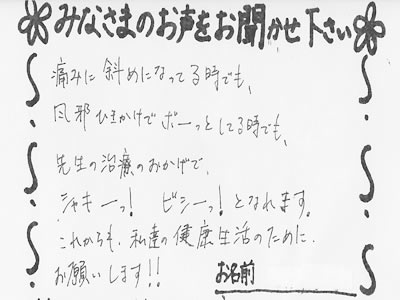 みなさまのお声をお聞かせ下さい
痛みに斜めになってる時でも、
風邪ひきかけでボーっとしてる時でも、
先生の治療のおかげで、
シャキーっ! ビシーっ!となれます。
これからも、私達の健康生活のために、
お願いします!!
お名前